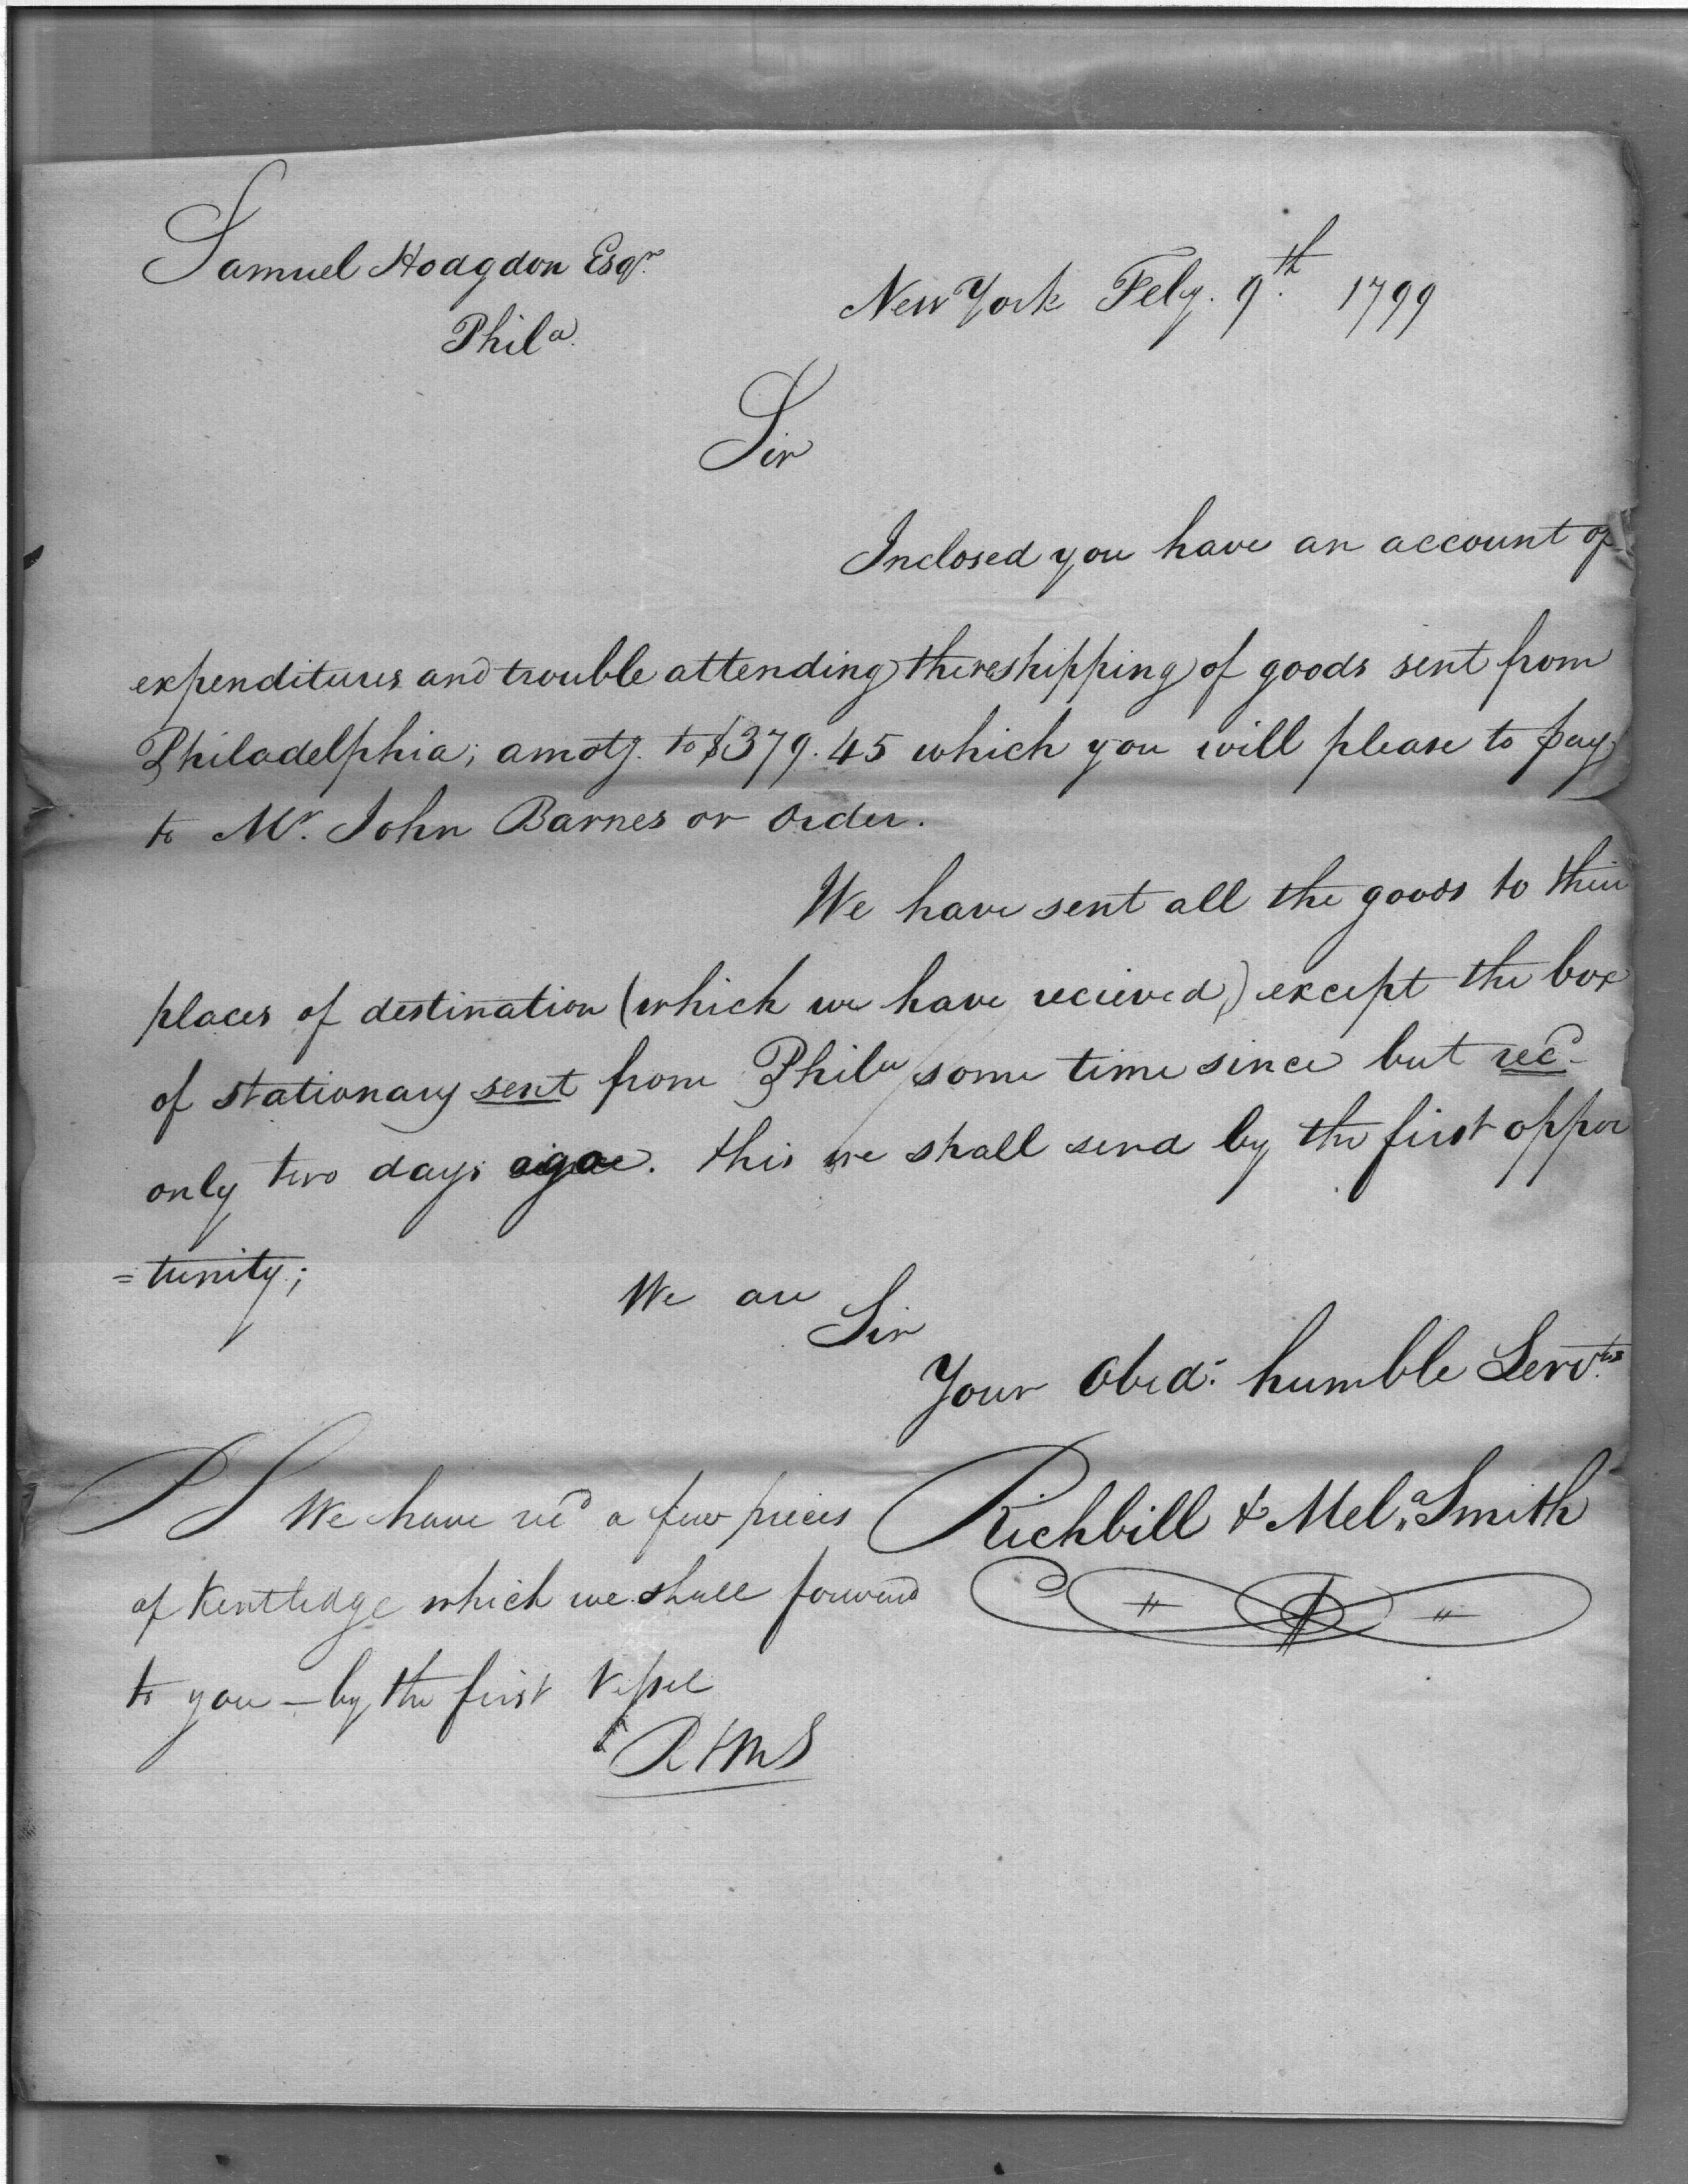 Samuel Hodgdon Esqr.
Phila.
New York Feby. 9th. 1799
Sir
Inclosed you have an account of
expenditures and trouble attending the reshipping of goods sent from
Philadelphia; amotg. to $379.45 which you will please to pay
to Mr. John Barnes or order.
We have sent all the goods to their
places of destination (which we have recieved) except the box
of stationary sent from Phila some time since but recd.
only two days agoe. this we shall send by the first oppor
=tunity;
We are
Sir
Your Obed. humble Servts.
Richbill & Mela. Smith
PS We have recd a few pieces
of Kentledge which we shall forward
to you — by the first Vessel
R & MS